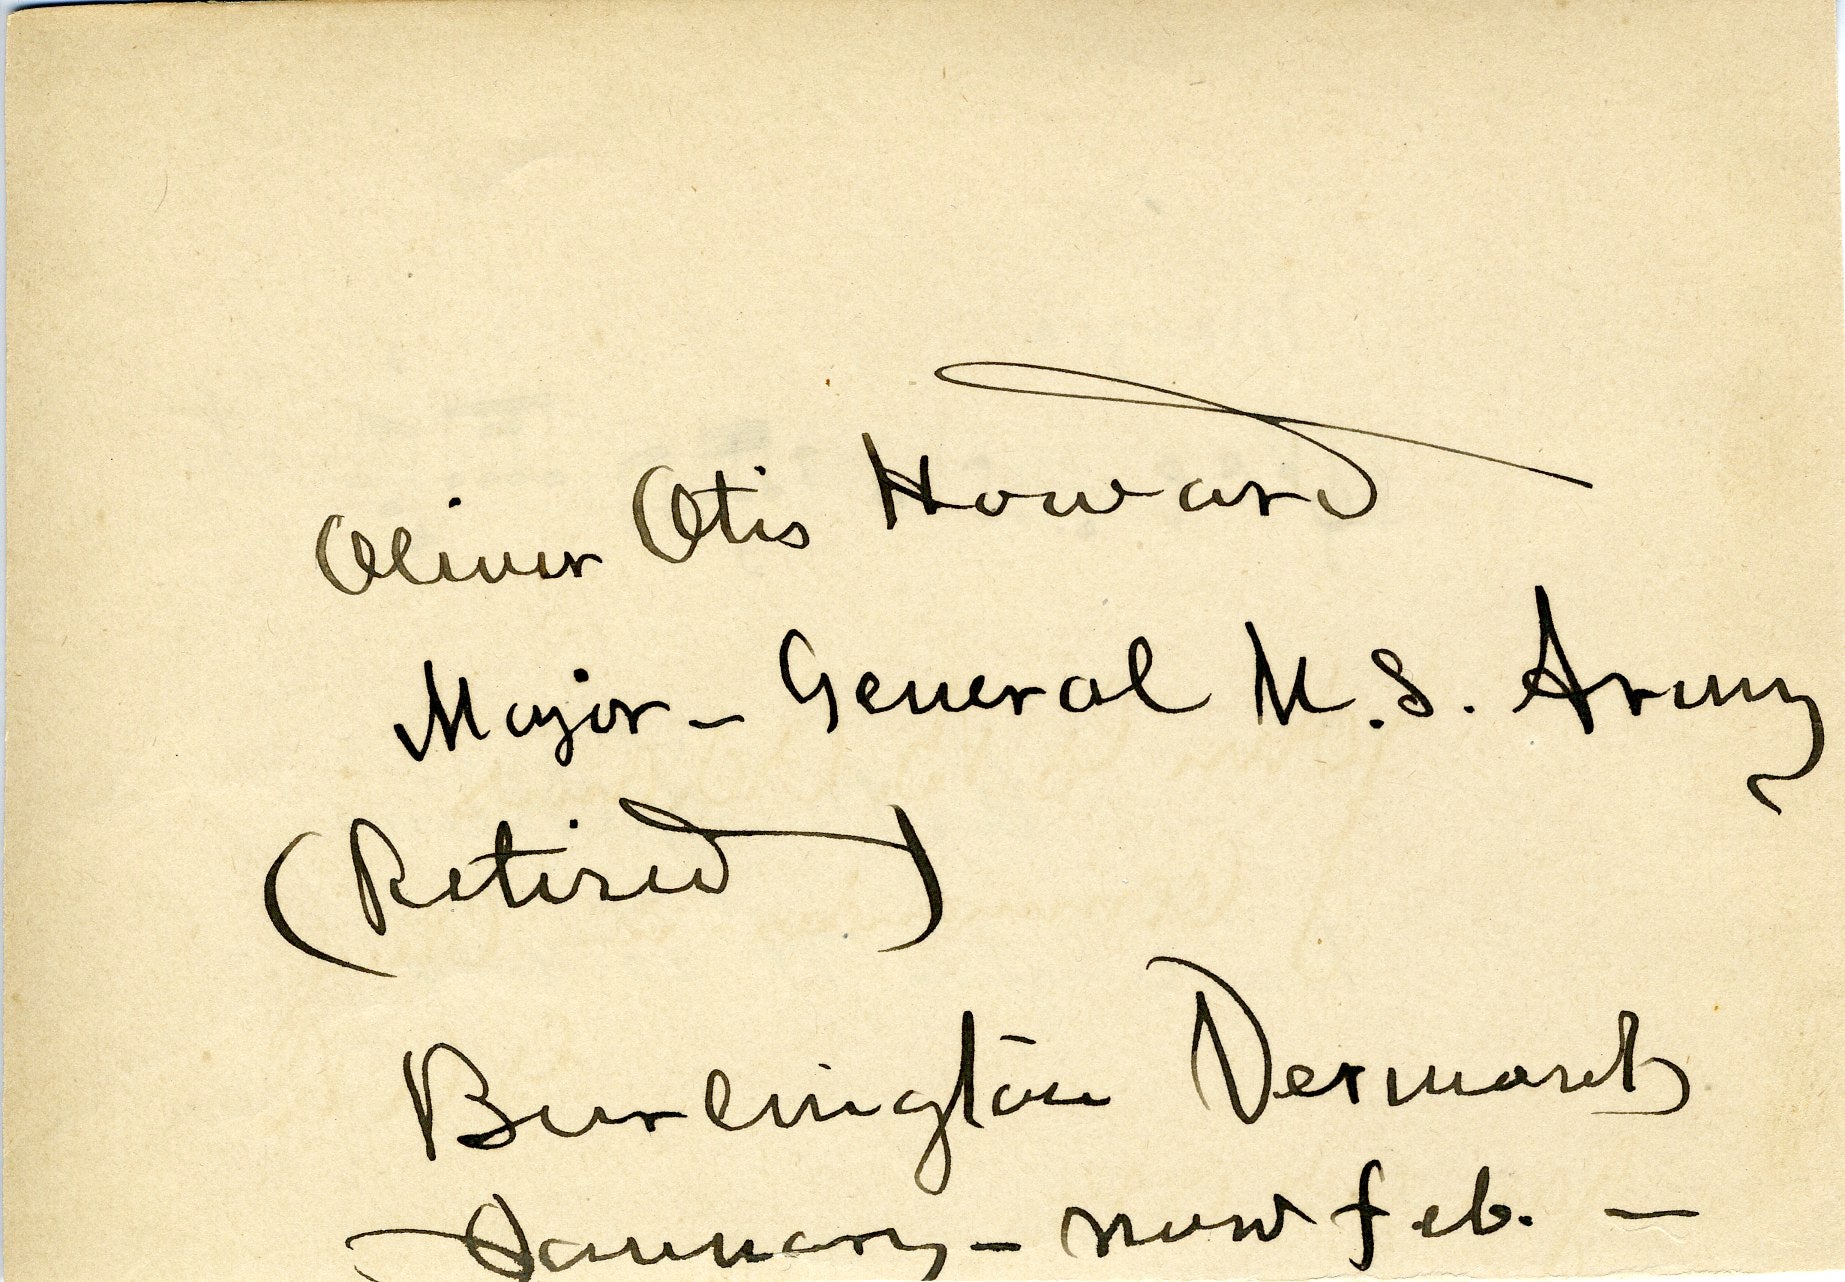 Oliver Otis Howard
Major - General U.S. Army
(Retired)
Burlington Vermont
January - now Feb. -